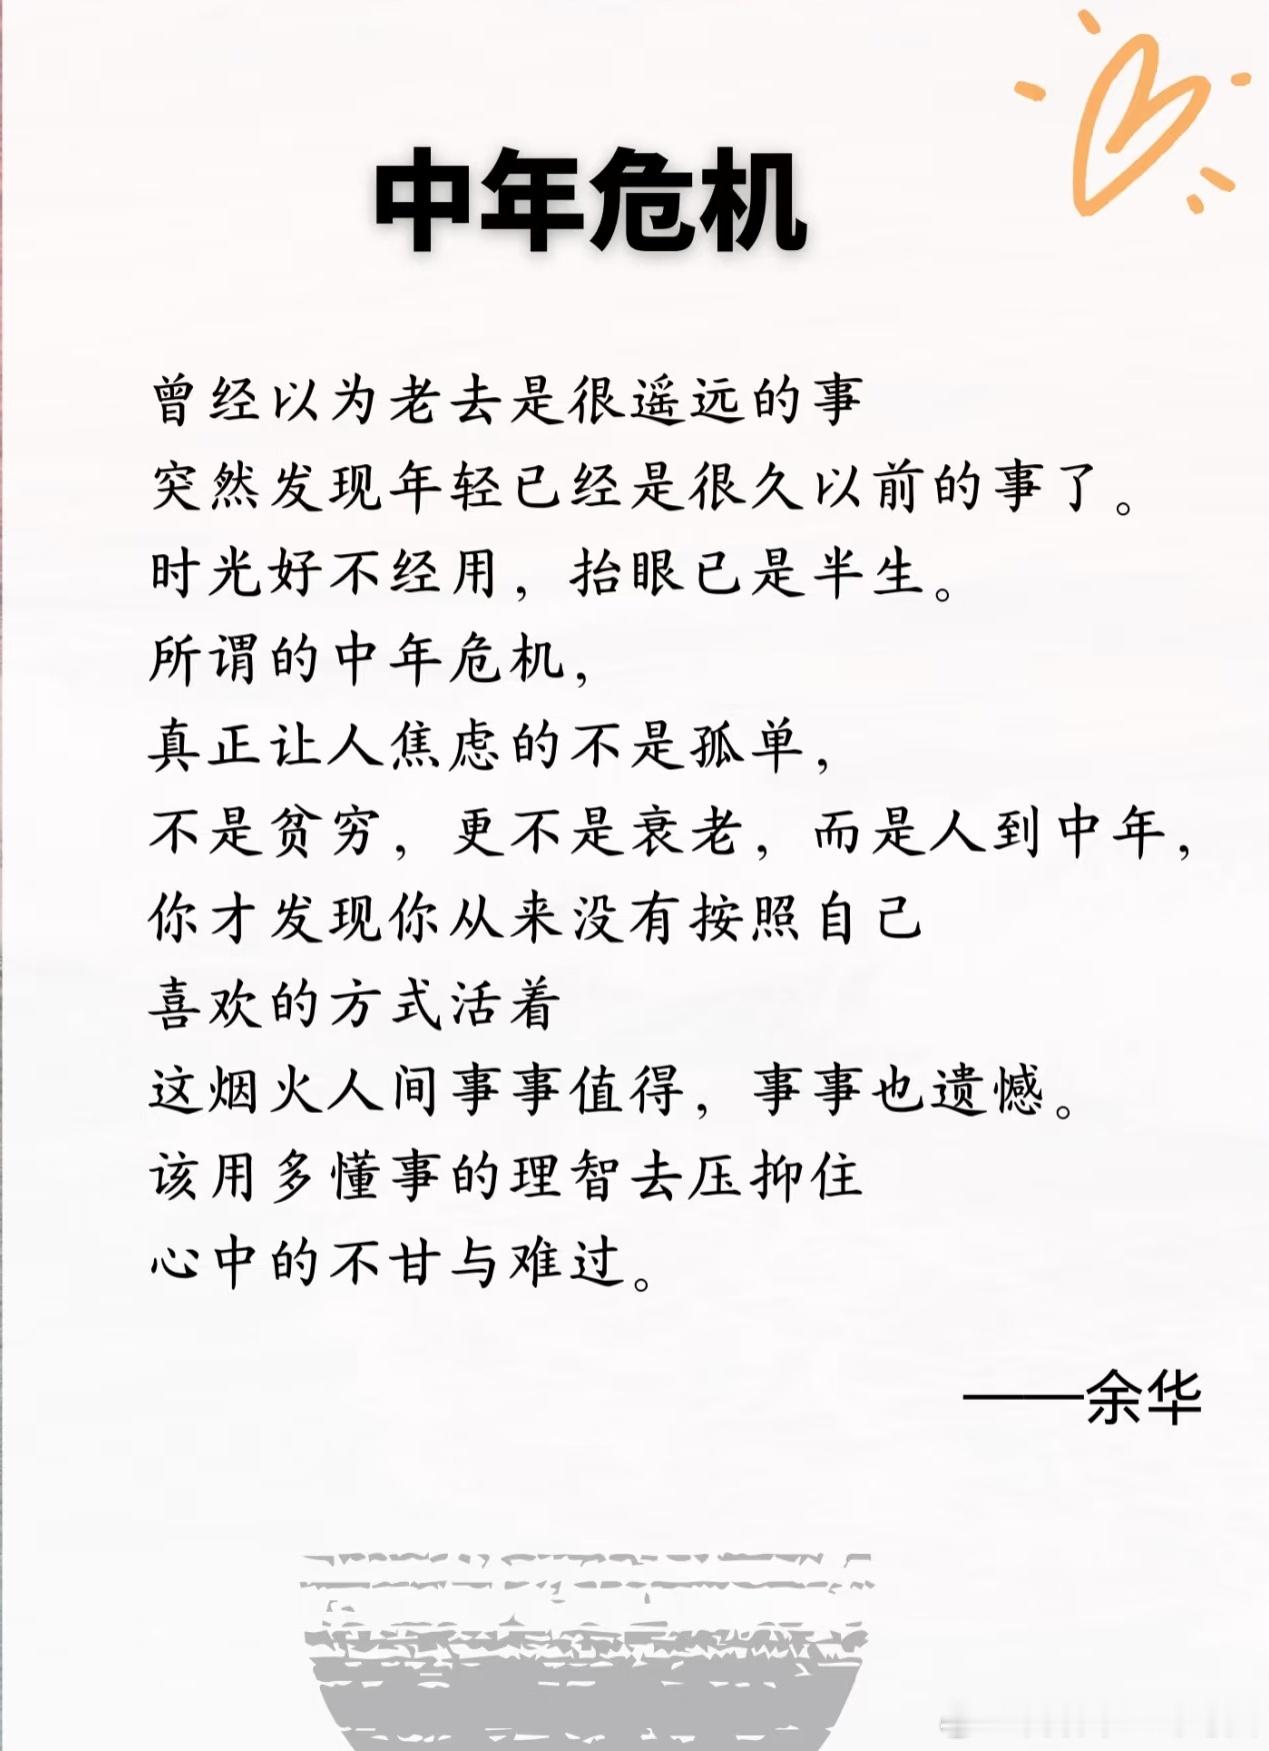 中年危机
曾经以为老去是很遥远的事
突然发现年轻已经是很久以前的事了。
时光好不经用，抬眼已是半生。
所谓的中年危机，
真正让人焦虑的不是孤单，
不是贫穷，更不是衰老，而是人到中年，
你才发现你从来没有按照自己
喜欢的方式活着
这烟火人间事事值得，事事也遗憾。
该用多懂事的理智去压抑住
心中的不甘与难过。
——余华